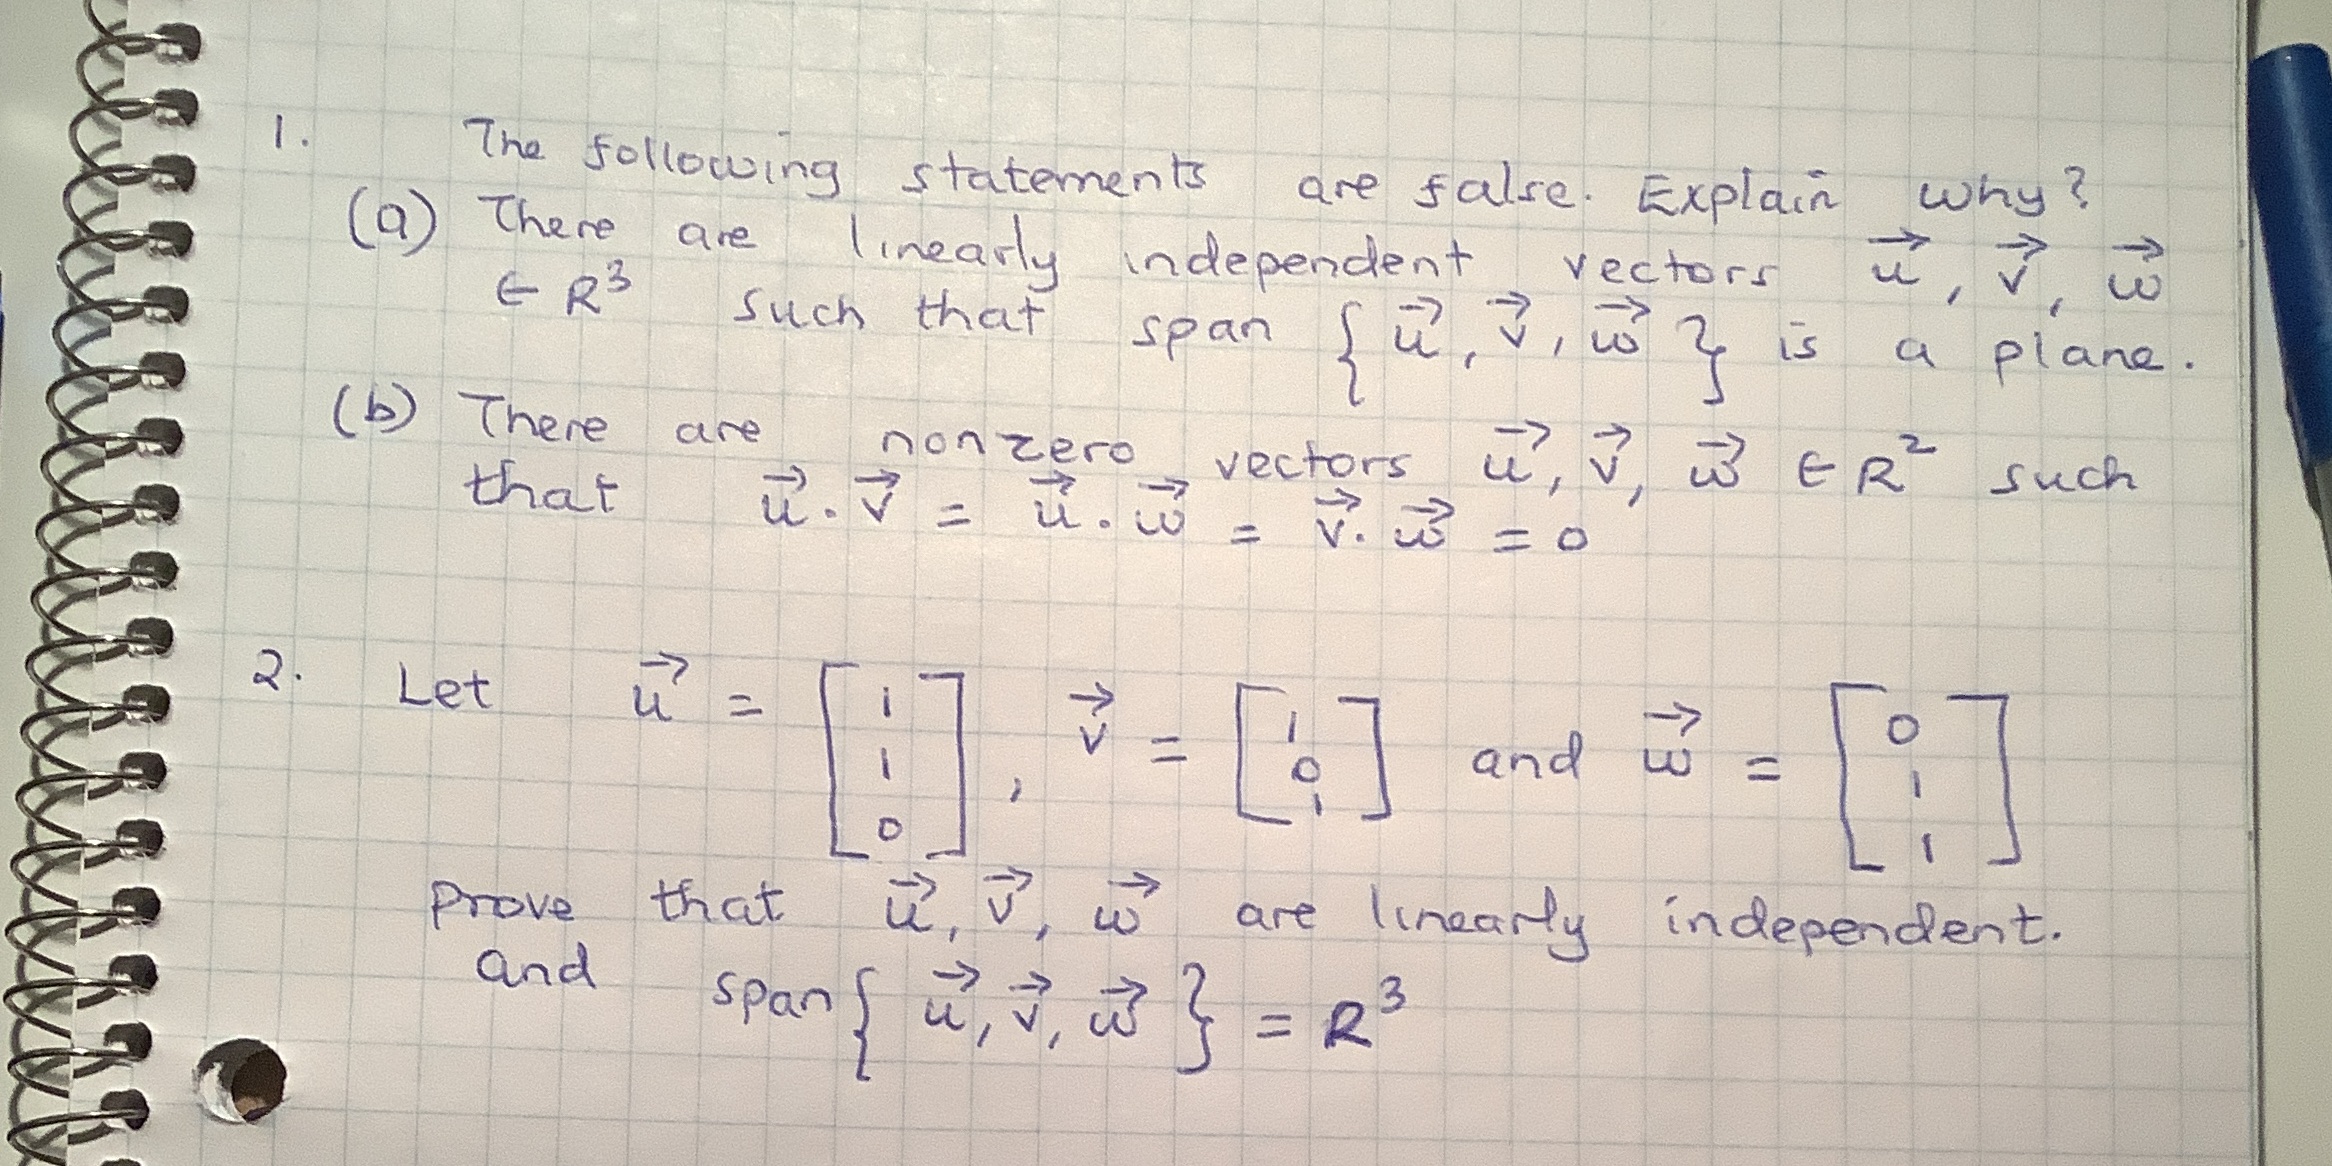 1. The following statements are false. Explain why?
(a) There are linearly independent vectors u⃗, v⃗, w⃗
∈ R³ such that span {u⃗, v⃗, w⃗} is a plane.
(b) There are nonzero vectors u⃗, v⃗, w⃗ ∈ R² such
that u⃗ . v⃗ = u⃗ . w⃗ = v⃗ . w⃗ = 0
2. Let u⃗ = [1 1 0], v⃗ = [1 0 1] and w⃗ = [0 1 1]
Prove that u⃗, v⃗, w⃗ are linearly independent.
and span{u⃗, v⃗, w⃗} = R³